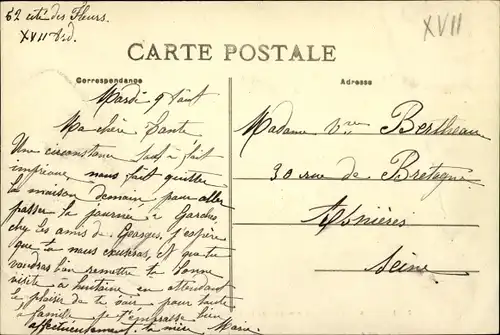 62 cité des Fleurs.
XVII
XVII Ard.
CARTE POSTALE
Correspondance
Adresse
Mardi 9 Août
Ma chère Tante
Une circonstance tout à fait
imprévue, nous fait quitter
la maison demain, pour aller
passer la journée à Garches,
chez les amis de Georges, j'espère
que tu nous excuseras, et que tu
voudras bien remettre ta bonne
visite à huitaine en attendant
le plaisir de te voir pour toute
la famille je t'embrasse bien
affectueusement, ta nièce Marie
Madame Vve Bertheau
30 rue de Bretagne
Asnières
Seine